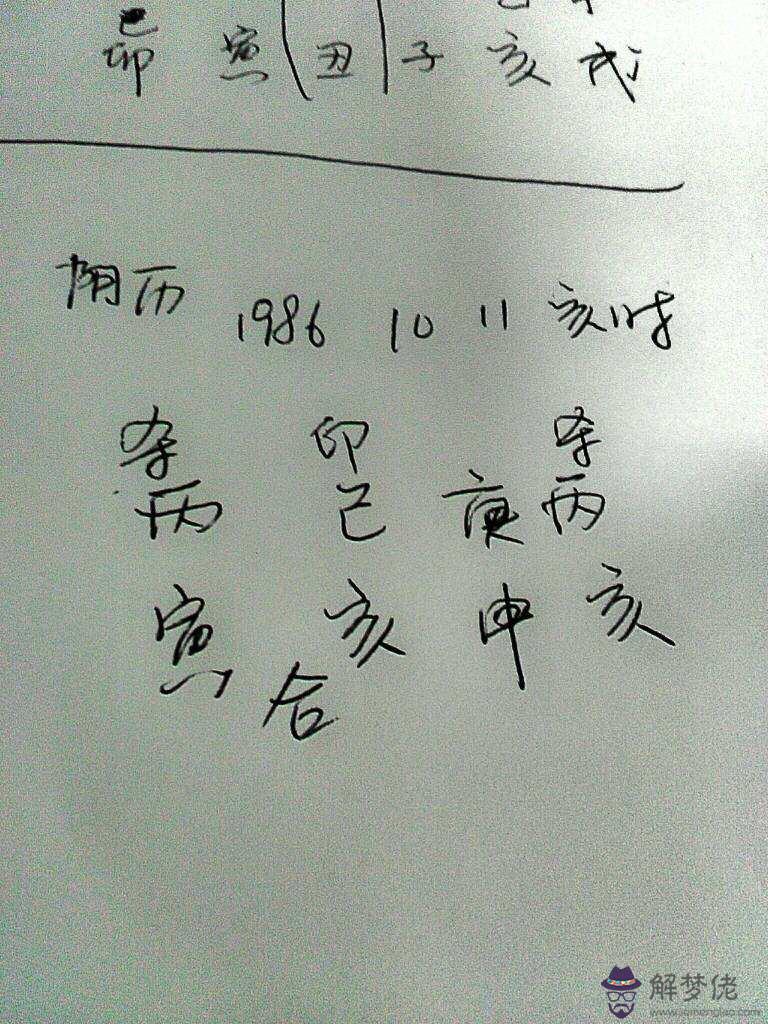 卯 寅 丑 子 亥 戌
阴历 1986 10 11 亥时
杀 印 杀
丙 己 庚 丙
寅 亥 申 亥
合
解梦佬
www.jiemenglao.com